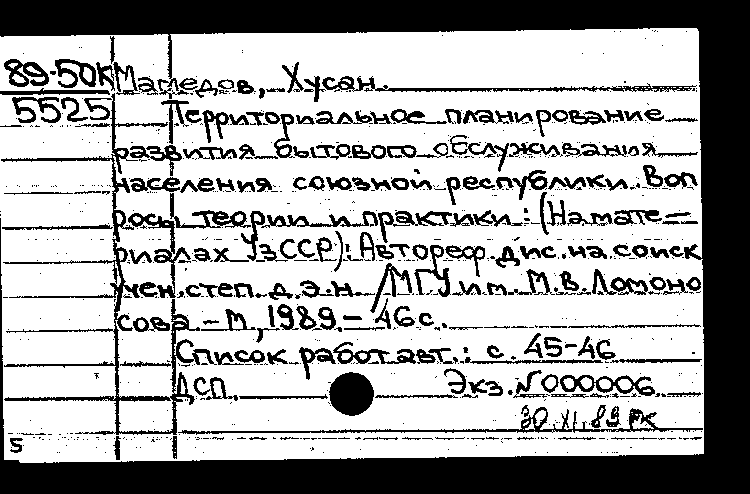 89-50К Мамедов, Хусан.
5525 Территориальное планирование
развития бытового обслуживания
населения союзной республики. Воп
росы теории и практики: (На мате-
риалах УзССР): Автореф. дис. на соиск
учен. степ. д.э.н. /МГУ им. М.В. Ломоно
сова. - М., 1989. - 46 с.
Список работ авт.: с. 45-46
ДСП. Экз. № 000006
30.XI.89 РК
5